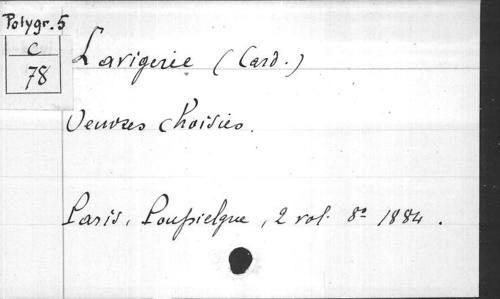 Polygr. 5
C
78
Lavigerie (Card.)
Oeuvres choisies.
Paris, Poussielgue, 2 vol. 8º 1884.